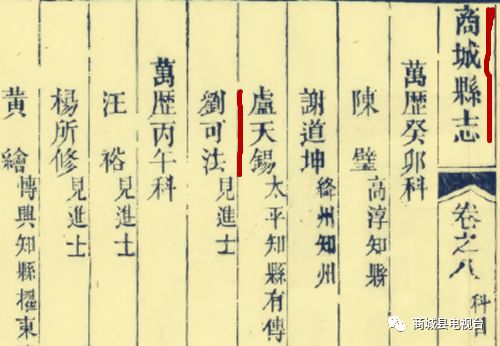 商城縣志
卷之八
科目
萬歷癸卯科
陳璧 高淳知縣
謝道坤 絳州知州
盧天錫 太平知縣有傳
劉可法 見進士
萬歷丙午科
汪裕 見進士
楊所修 見進士
黃繪 博興知縣擢東
商城县电视台